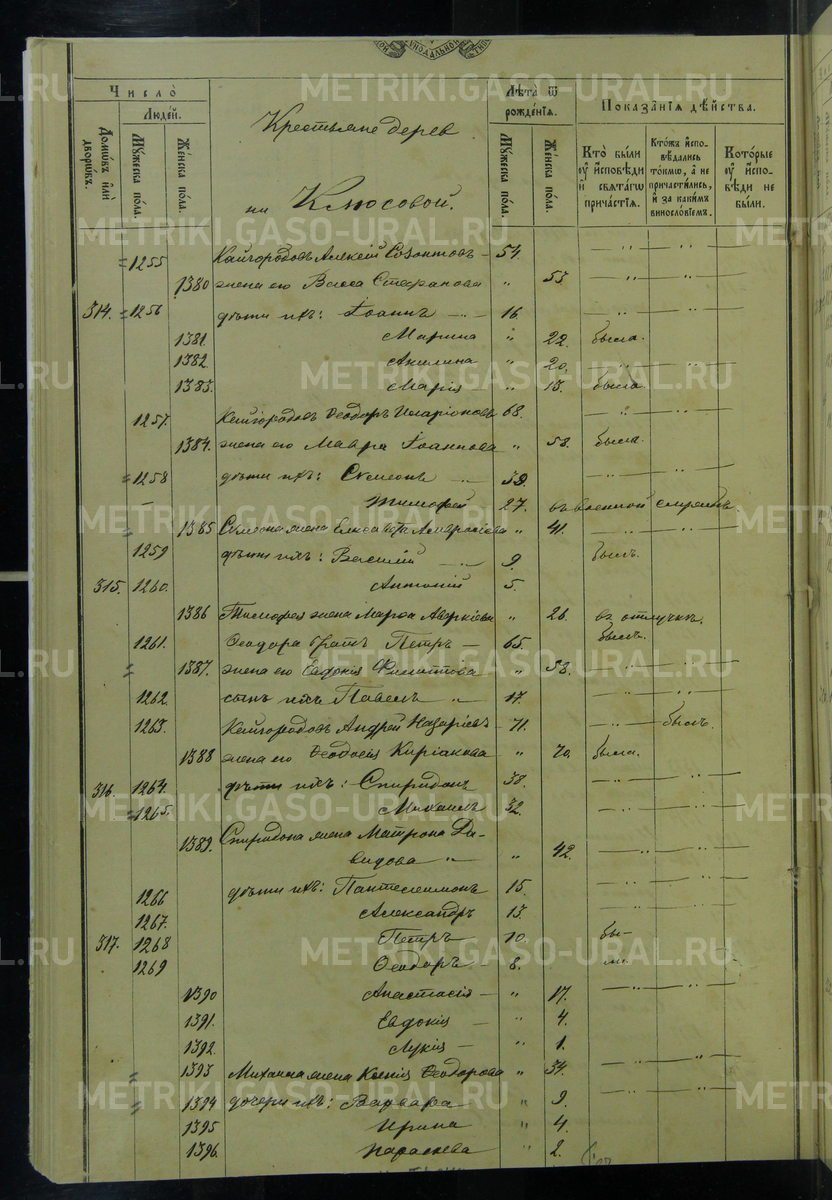 METRIKI.GASO-URAL.RU
Число̀
Людей.
Домѡвъ или дворѡвъ.
Мужеска пола.
Женска пола.
Лѣта ѿ рожденїѧ.
Мужеска пола.
Женска пола.
Показанїѧ дѣйства.
Кто были оу исповѣди и свѧтагѡ причастїѧ.
Ктожъ исповѣдались токмѡ, а не причастились, и за какимъ винословїемъ.
Которые оу исповѣди не были.
Крестьяне дерев
ни Клюсовой.
1255 Кайгородовъ Алексій Созонтовъ – 54.
1380 жена его Васса Стефанова " 53
314. 1256 дѣти ихъ: Іоаннъ 16.
1381. Марина " 22. была.
1382. Акилина " 20.
1383. Марія " 13. была.
1257. Кайгородовъ Ѳеодоръ Иларіоновъ 68.
1384. жена его Мавра Іоаннова " 58. была.
1258 дѣти ихъ: Симеонъ 39.
— Тимофей 27. въ военной службѣ.
1385 Симеона жена Елисавета " 41.
1259 дѣти ихъ: Василій 9. былъ.
315. 1260. Антоній 5.
1386 Тимофея жена Марѳа Аверкіева " 26. въ отлучкѣ.
1261. Ѳеодора братъ Петръ — 65. былъ.
1387. жена его Евдокія Филиппова " 58.
1262. сынъ ихъ Павелъ " 17.
1263. Кайгородовъ Андрей Назаріевъ 71. былъ.
1388 жена его Ѳеодосія Киріакова " 70. была.
316. 1264. дѣти ихъ: Спиридонъ 38.
1265. Михаилъ 32.
1389. Спиридона жена Матрона Да-
видова " " 42.
1266 дѣти ихъ: Пантелеимонъ 15.
1267. Александръ 13.
317. 1268 Петръ 10. бы-
1269 Ѳеодоръ 8. ли.
1390 Анастасія — " 17.
1391. Евдокія — " 4.
1392. Лукія — " 1.
1393 Михаила жена Ксенія Ѳеодорова " 34.
1394 дочери ихъ: Варвара " 9.
1395 Ирина " 4.
1396. Параскева " 2.